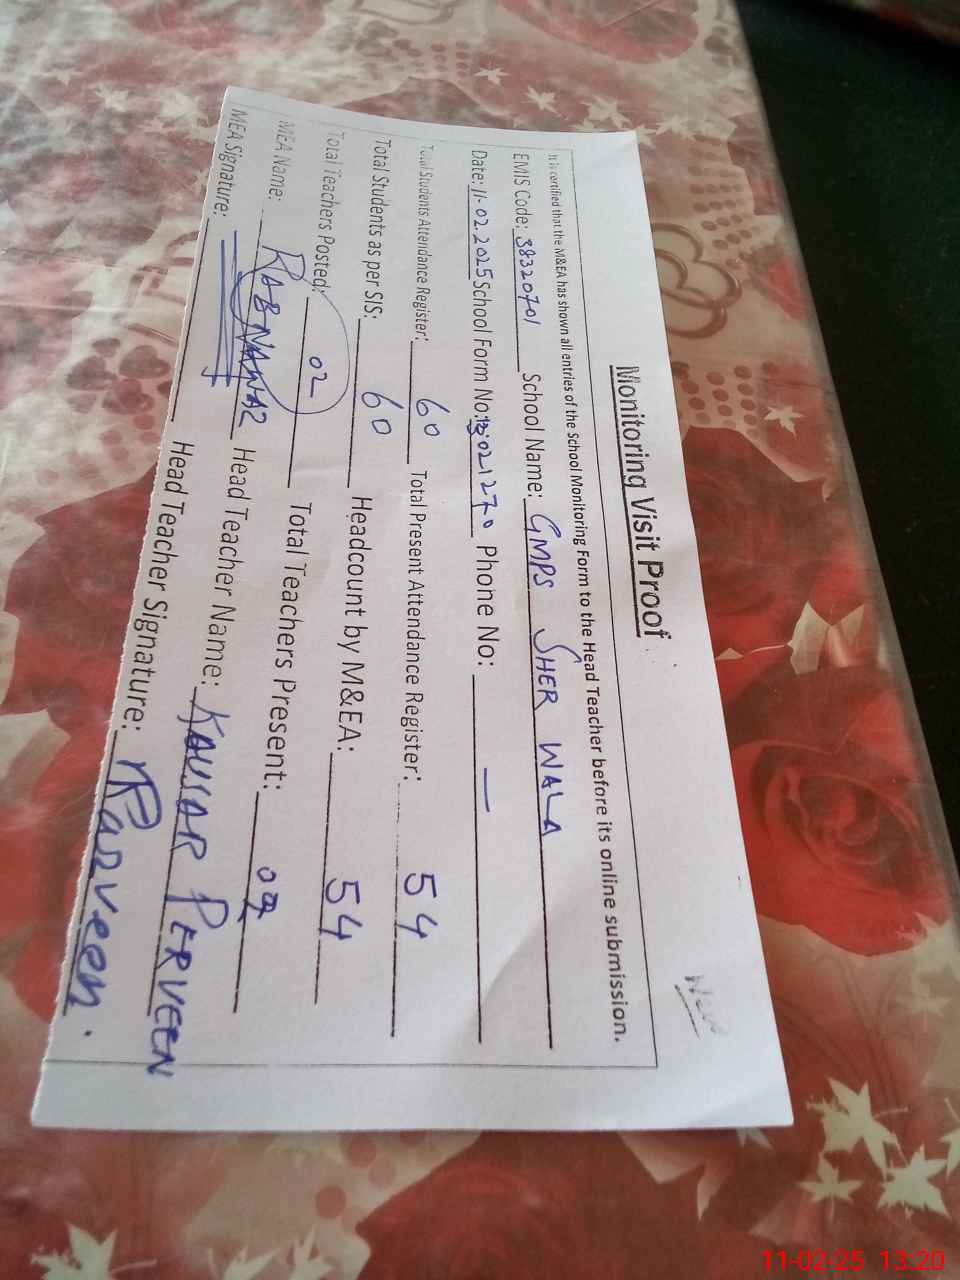 Monitoring Visit Proof
It is certified that the M&EA has shown all entries of the School Monitoring Form to the Head Teacher before its online submission.
EMIS Code: 38320701 School Name: GMPS SHER WALA
Date: 11.02.2025 School Form No: 13021270 Phone No: —
Total Students Attendance Register: 60 Total Present Attendance Register: 54
Total Students as per SIS: 60 Headcount by M&EA: 54
Total Teachers Posted: 02 Total Teachers Present: 02
MEA Name: RAB NAWAZ Head Teacher Name: KAUSAR PERVEEN
MEA Signature: Head Teacher Signature: Parveen.
11-02-25 13:20